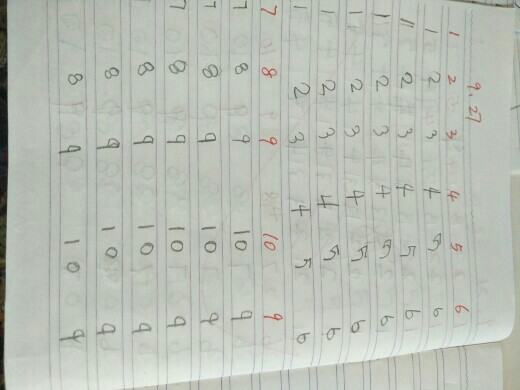 9.27
1 2 3 4 5 6
1 2 3 4 5 6
1 2 3 4 5 6
1 2 3 4 5 6
1 2 3 4 5 6
1 2 3 4 5 6
1 2 3 4 5 6
7 8 9 10 9
7 8 9 10 9
7 8 9 10 9
7 8 9 10 9
8 9 10 9
8 9 10 9
8 9 10 9